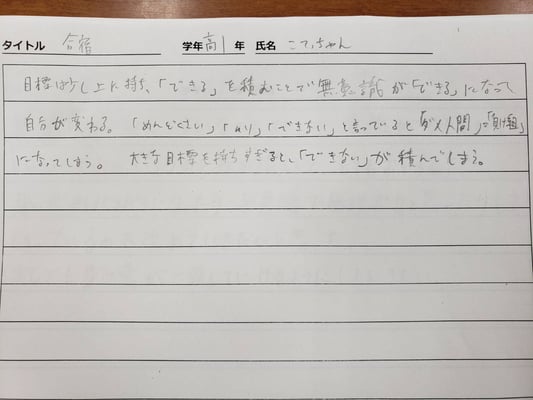 タイトル 合宿 学年 高1 年 氏名 こてっちゃん
目標は少し上に持ち、「できる」を積むことで無意識が「できる」になって
自分が変わる。「めんどくさい」「ムリ」「できない」と言っていると「ダメ人間」「負け組」
になってしまう。 大きな目標を持ちすぎると、「できない」が積んでしまう。